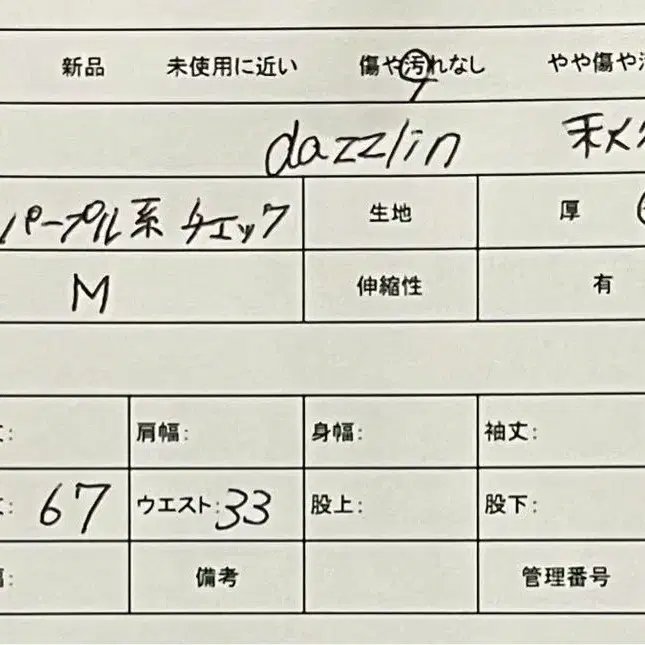 新品 未使用に近い 傷や汚れなし やや傷や
dazzlin 秋
パープル系 チェック 生地 厚
M 伸縮性 有
: 肩幅: 身幅: 袖丈:
: 67 ウエスト: 33 股上: 股下:
: 備考 管理番号